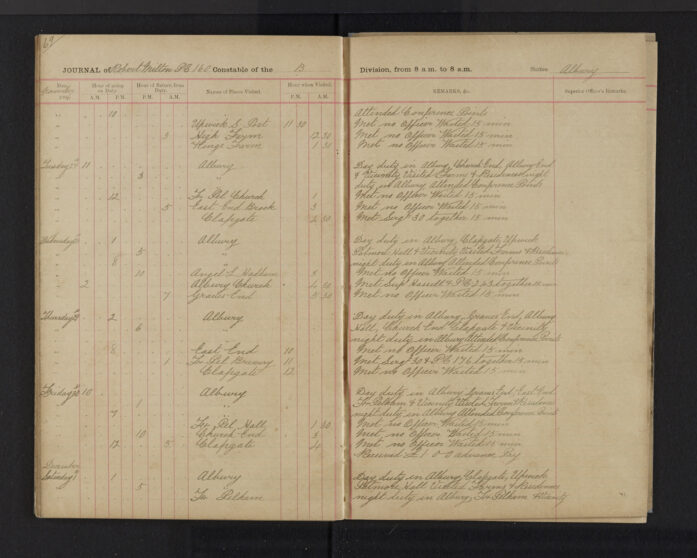 69
JOURNAL of Robert PC 160 Constable of the B Division, from 8 a.m. to 8 a.m. Station Albury
Hour of going on Duty. Hour of Return from Duty. Names of Places Visited. Hour when Visited. REMARKS, &c. Superior Officer's Remarks.
A.M. P.M. A.M. P.M. A.M.
" 10 Attended Conference Points
" Upwick S. Post 11 30 Met no Officer Waited 15 min
" 3 High 12 30 Met no Officer Waited 15 min
" Farm 1 30 Met no Officer Waited 15 min
Tuesday 11 Albury Day duty in Albury, Church End, Albury End
" 3 " & Vicinity Visited Farms & Residences night
" duty in Albury attended Conference Points
" 12 Fx Pel Church 1 Met no Officer Waited 15 min
" 5 East End Brook 3 Met no Officer Waited 15 min
" Clapgate 2 30 Met Sergt 30 together 15 min
Wednesday 1 Albury Day duty in Albury, Clapgate, Upwick
" 5 " Patmore Hall & Vicinity Visited Farms &
" 8 " night duty in Albury Attended Conference Points
" 10 Hadham Met no Officer Waited 15 min
" 2 Albury Church 4 30 Met Supt & PC together 15 min
" 7 Graves End 5 30 Met no Officer Waited 15 min
Thursday 2 Albury Day duty in Albury, Graves End, Albury
" 6 " Hall, Church End Clapgate & Vicinity
" night duty in Albury Attended Conference Points
" 8 East End 10 Met no Officer Waited 15 min
" 1 Fx Pel Brewery 11 Met Sergt 30 & PC 176 together 15 min
" Clapgate 12 Met no Officer Waited 15 min
Friday 10 Albury Day duty in Albury Graves End, East End
" 1 " Fx Pelham & Vicinity Visited Farms &
" 7 " night duty in Albury Attended Conference Points
" Fx Pel Hall 1 30 Met no Officer Waited 15 min
" 10 Church End 3 Met no Officer Waited 15 min
" 12 5 Clapgate 4 Met no Officer Waited 15 min
Received £1-0-0 advance Pay
December
Saturday 1 1 Albury Day duty in Albury, Clapgate, Upwick
" 5 " Patmore Hall Visited Farms & Residences
" Fx Pelham night duty in Albury, Fx Pelham & Vicinity